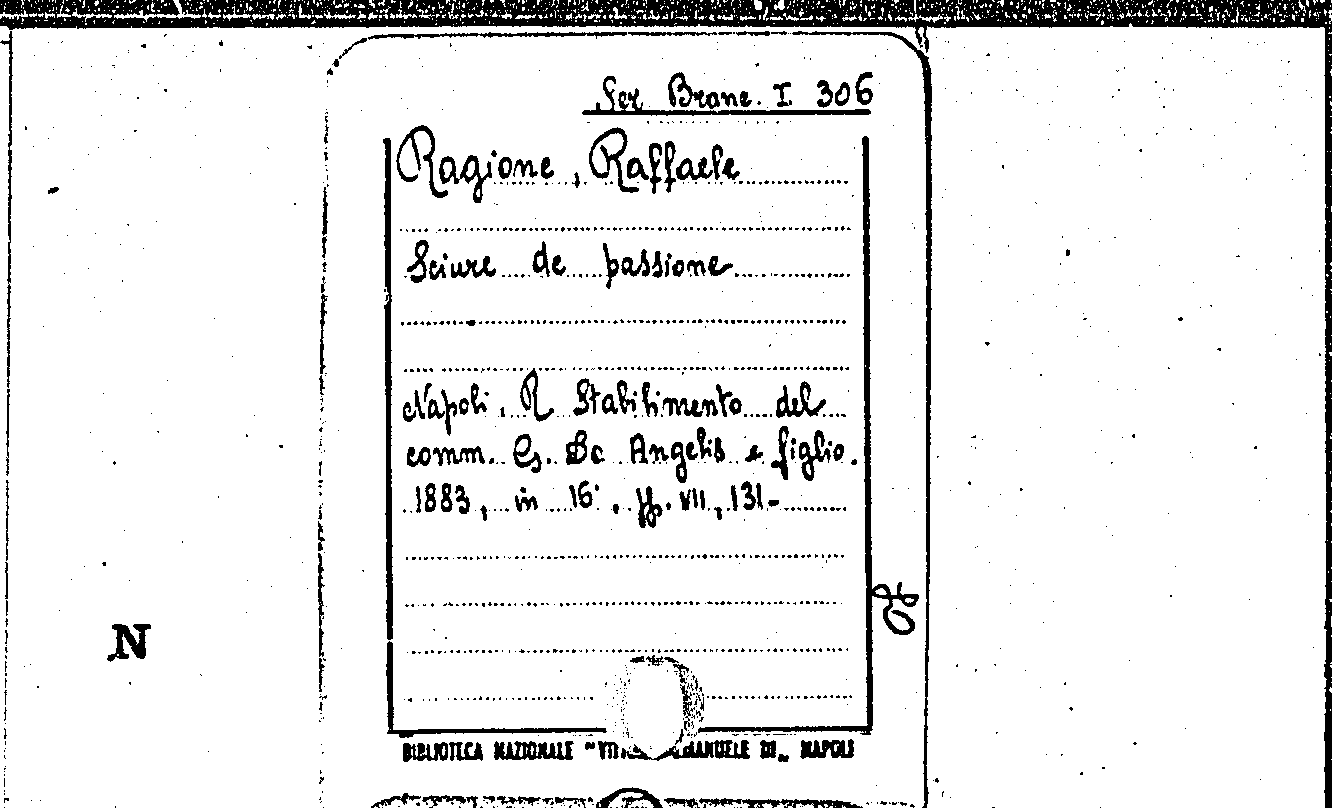 Ser Branc. I. 306
Ragione, Raffaele
Sciure de passione
Napoli, R Stabilimento del
comm. G. De Angelis e figlio.
1883, in 16°, pp. VII, 131-
N
BIBLIOTECA NAZIONALE "VITT EMANUELE III" NAPOLI